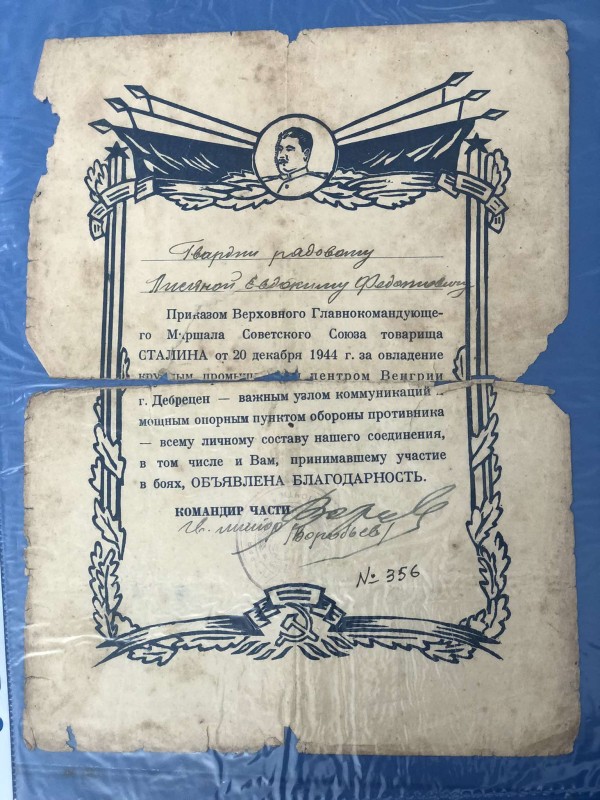 Гвардии рядовому
Евдокиму
Приказом Верховного Главнокомандующе-
го Маршала Советского Союза товарища
СТАЛИНА от 20 декабря 1944 г. за овладение
крупным промышленным центром Венгрии
г. Дебрецен — важным узлом коммуникаций и
мощным опорным пунктом обороны противника
— всему личному составу нашего соединения,
в том числе и Вам, принимавшему участие
в боях, ОБЪЯВЛЕНА БЛАГОДАРНОСТЬ.
КОМАНДИР ЧАСТИ
гв. майор
/Воробьев/
№ 356